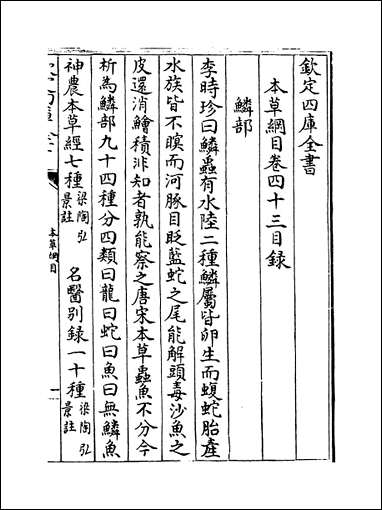 欽定四庫全書
本草綱目卷四十三目録
鱗部
李時珍曰鱗蟲有水陸二種鱗屬皆卵生而蝮蛇胎産
水族皆不瞑而河豚目眨藍蛇之尾能解頭毒沙魚之
皮還消鱠積非知者孰能察之唐宋本草蟲魚不分今
析為鱗部九十四種分四類曰龍曰蛇曰魚曰無鱗魚
神農本草經七種梁陶弘景註 名醫别録一十種梁陶弘景註
本草綱目
一